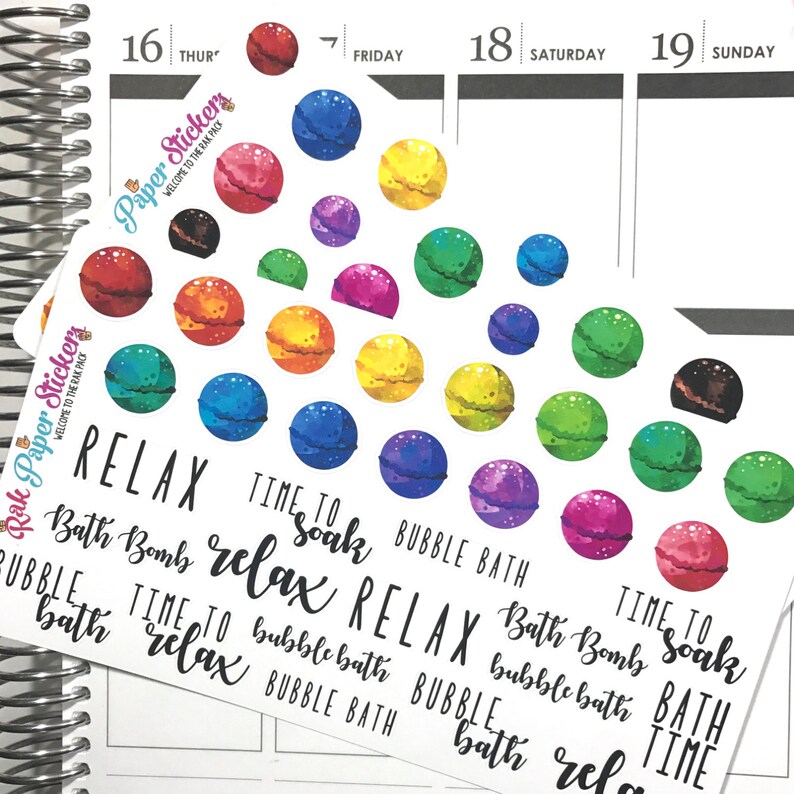 16 THURS
7 FRIDAY
18 SATURDAY
19 SUNDAY
Paper Stickers
WELCOME TO THE RAK PACK
Rak Paper Stickers
WELCOME TO THE RAK PACK
RELAX
TIME TO
soak
BUBBLE BATH
Bath Bomb
relax
RELAX
Bath Bomb
TIME TO
soak
BUBBLE
bath
TIME TO
relax
bubble bath
BUBBLE BATH
BUBBLE
bath
bubble bath
BATH
TIME
relax